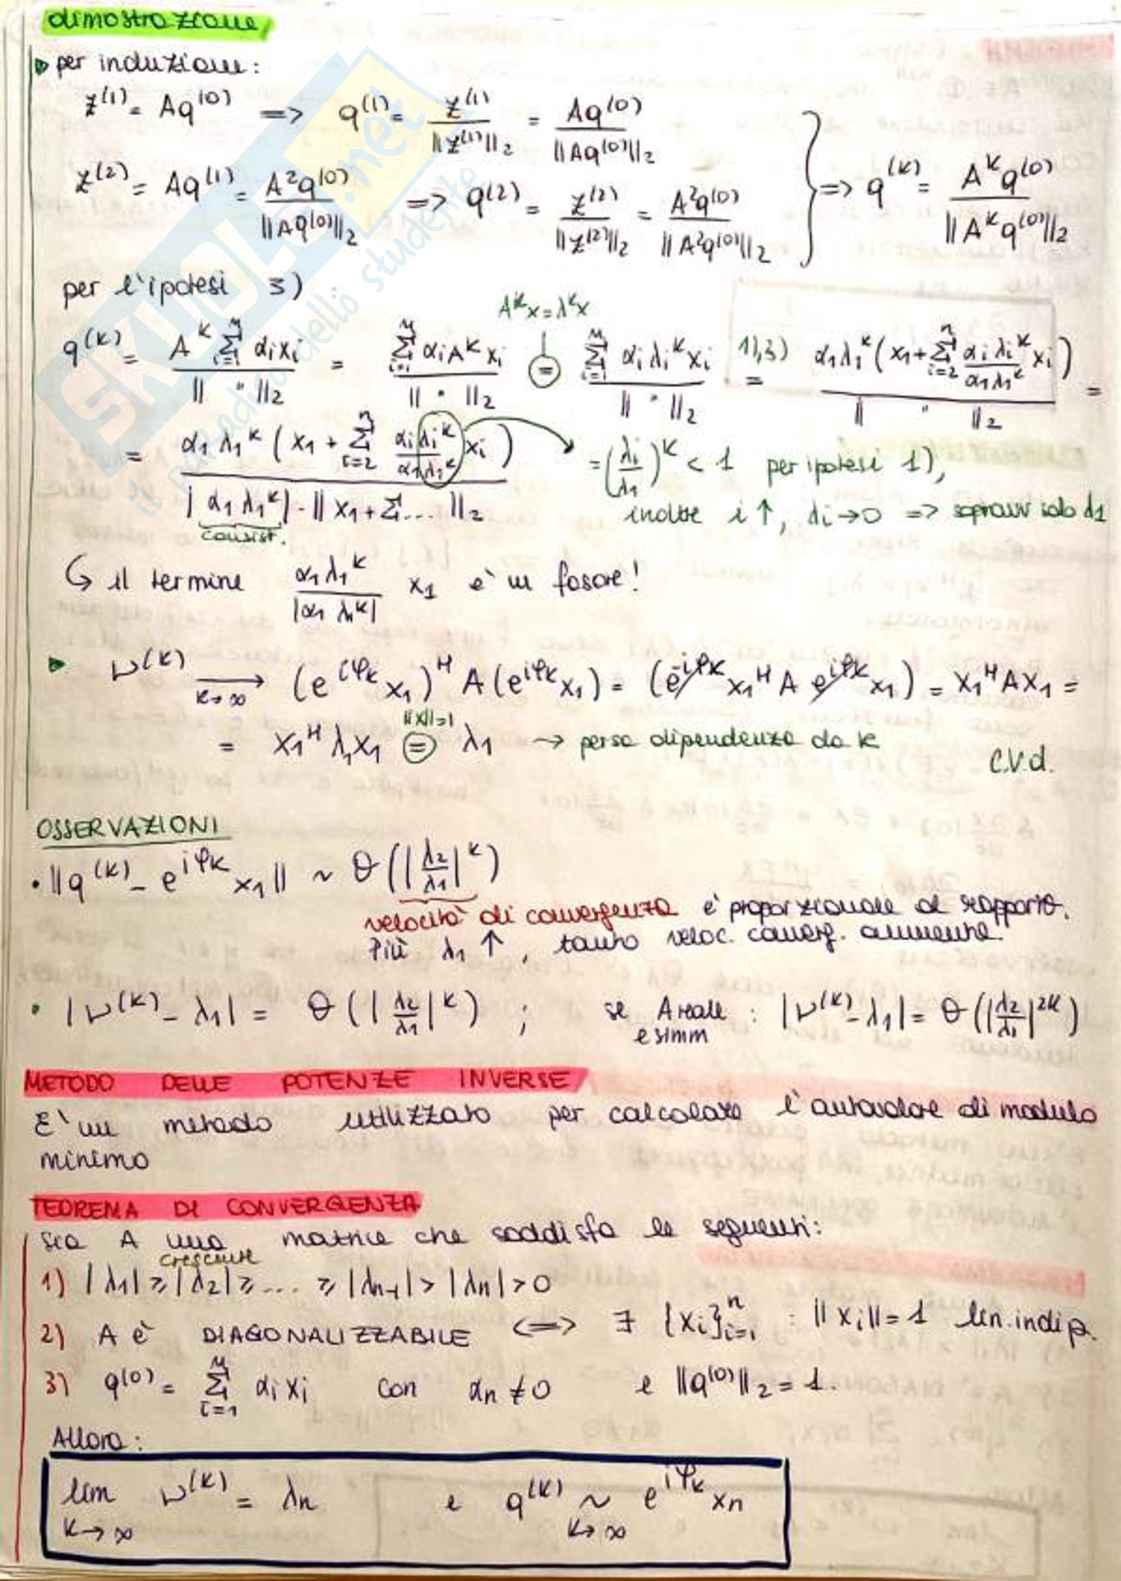 dimostrazione
per induzione:
z^(1) = Aq^(0) => q^(1) = z^(1) / ||z^(1)||₂ = Aq^(0) / ||Aq^(0)||₂
z^(2) = Aq^(1) = A²q^(0) / ||Aq^(0)||₂ => q^(2) = z^(2) / ||z^(2)||₂ = A²q^(0) / ||A²q^(0)||₂ } => q^(k) = A^k q^(0) / ||A^k q^(0)||₂
per l'ipotesi 3)
A^k x = λ^k x
q^(k) = A^k Σ_{i=1}^n αi xi / || " ||₂ = Σ_{i=1}^n αi A^k xi / || " ||₂ = Σ_{i=1}^n αi λi^k xi / || " ||₂ 1),3) = α1 λ1^k (x1 + Σ_{i=2}^n αi λi^k / α1 λ1^k xi) / || " ||₂ =
= α1 λ1^k (x1 + Σ_{i=2}^n αi λi^k / α1 λ1^k xi) / |α1 λ1^k| · ||x1 + Σ... ||₂ = (λi/λ1)^k < 1 per ipotesi 1),
inoltre i ↑, λi → 0 => sopravv solo λ1
consist.
↳ il termine α1 λ1^k / |α1 λ1^k| x1 è un fasore!
ν^(k) →_{k→∞} (e^{iφk} x1)^H A (e^{iφk} x1) = (e^{-iφk} x1^H A e^{iφk} x1) = x1^H A x1 =
= x1^H λ1 x1 =^{||x||=1} λ1 → persa dipendenza da k
C.V.d.
OSSERVAZIONI
• ||q^(k) - e^{iφk} x1|| ~ θ(|λ2/λ1|^k)
velocità di convergenza è proporzionale al rapporto.
Più λ1 ↑, tanto veloc. converg. aumenta.
• |ν^(k) - λ1| = θ(|λ2/λ1|^k) ; se A reale e simm : |ν^(k) - λ1| = θ(|λ2/λ1|^{2k})
METODO DELLE POTENZE INVERSE
E' un metodo utilizzato per calcolare l'autovalore di modulo
minimo
TEOREMA DI CONVERGENZA
Sia A una matrice che soddisfa le seguenti:
crescente
1) |λ1| ≥ |λ2| ≥ .... ≥ |λn-1| > |λn| > 0
2) A è DIAGONALIZZABILE <=> ∃ {xi}_{i=1}^n : ||xi|| = 1 lin. indip.
3) q^(0) = Σ_{i=1}^n αi xi con αn ≠ 0 e ||q^(0)||₂ = 1.
Allora:
lim_{k→∞} ν^(k) = λn e q^(k) ~_{k→∞} e^{iφk} xn
SKUOLA.net